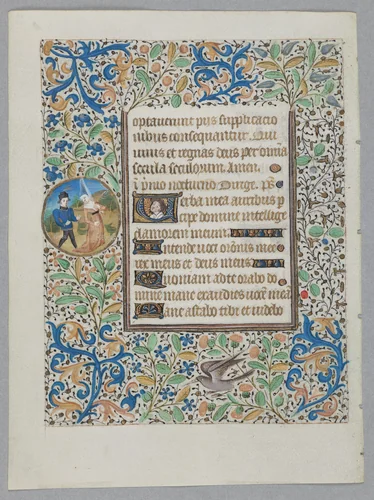 optaverunt piis supplicacio
nibus consequantur. Qui
vivis et regnas deus per omnia
secula seculorum. Amen.
Verba mea auribus p
cipe domine intellige
clamorem meum
Intende voci oracionis mee
rex meus et deus meus
Quoniam ad te orabo do
mine mane exaudies vocem mea
Mane astabo tibi et videbo